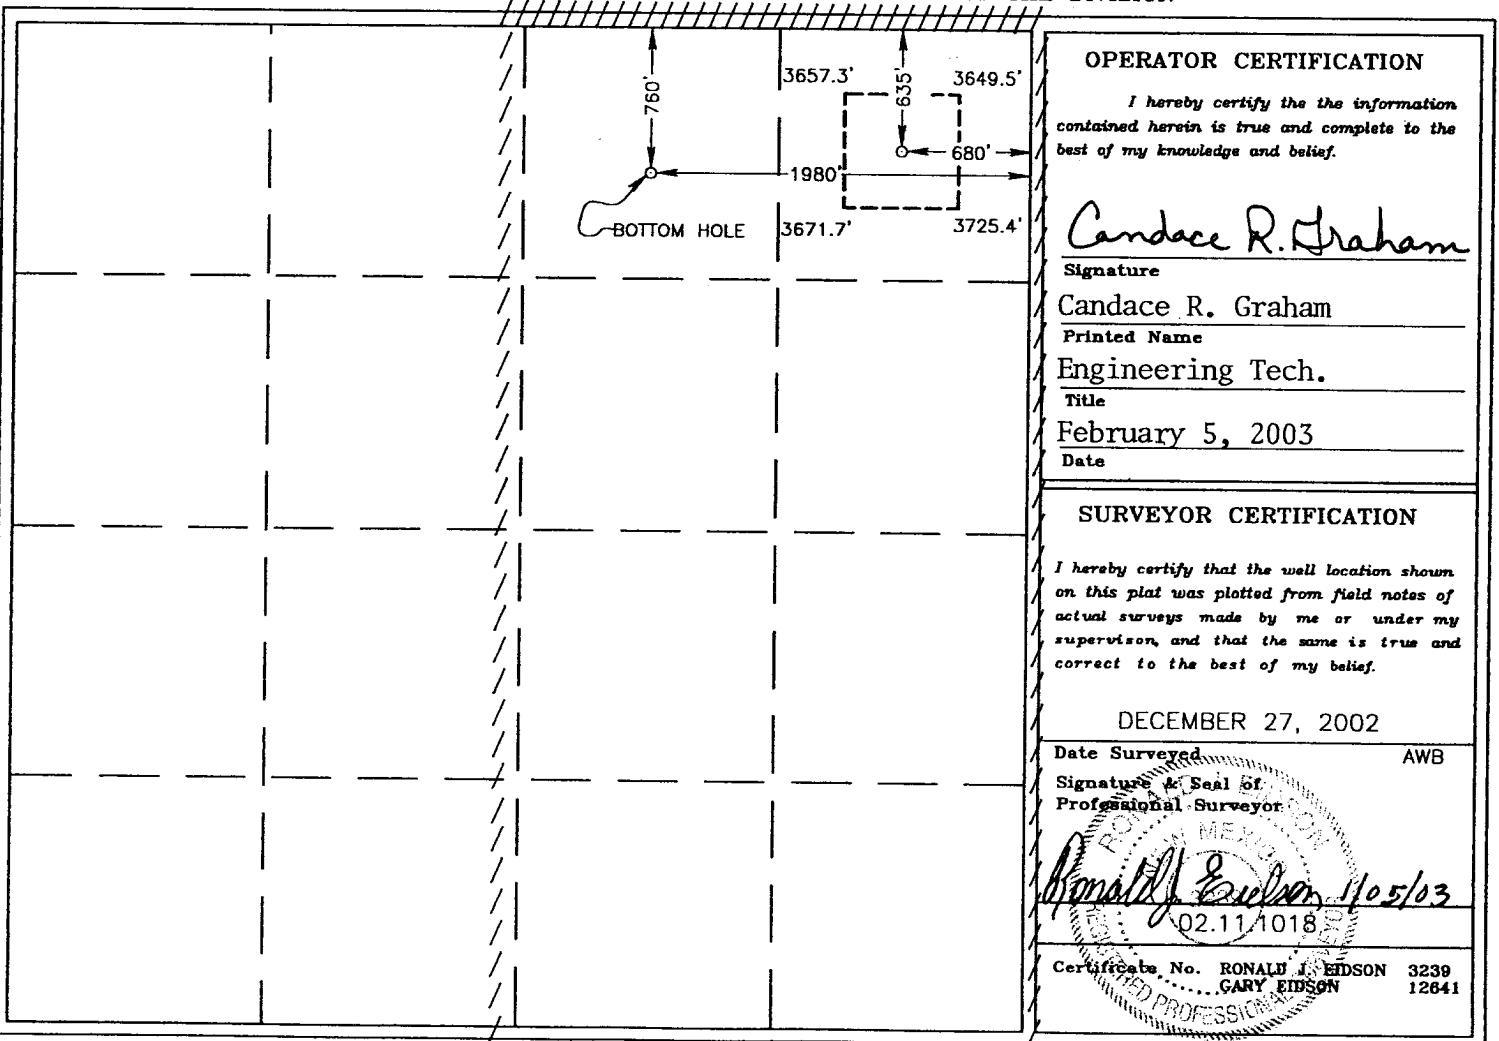 760'
3657.3'
635'
3649.5'
680'
1980'
BOTTOM HOLE
3671.7'
3725.4'
OPERATOR CERTIFICATION
I hereby certify the the information
contained herein is true and complete to the
best of my knowledge and belief.
Candace R. Graham
Signature
Candace R. Graham
Printed Name
Engineering Tech.
Title
February 5, 2003
Date
SURVEYOR CERTIFICATION
I hereby certify that the well location shown
on this plat was plotted from field notes of
actual surveys made by me or under my
supervison, and that the same is true and
correct to the best of my belief.
DECEMBER 27, 2002
Date Surveyed AWB
Signature & Seal of
Professional Surveyor
RONALD J. EIDSON
NEW MEXICO
Ronald J. Eidson 1/05/03
02.11.1018
Certificate No. RONALD J. EIDSON 3239
GARY EIDSON 12641
REGISTERED PROFESSIONAL SURVEYOR